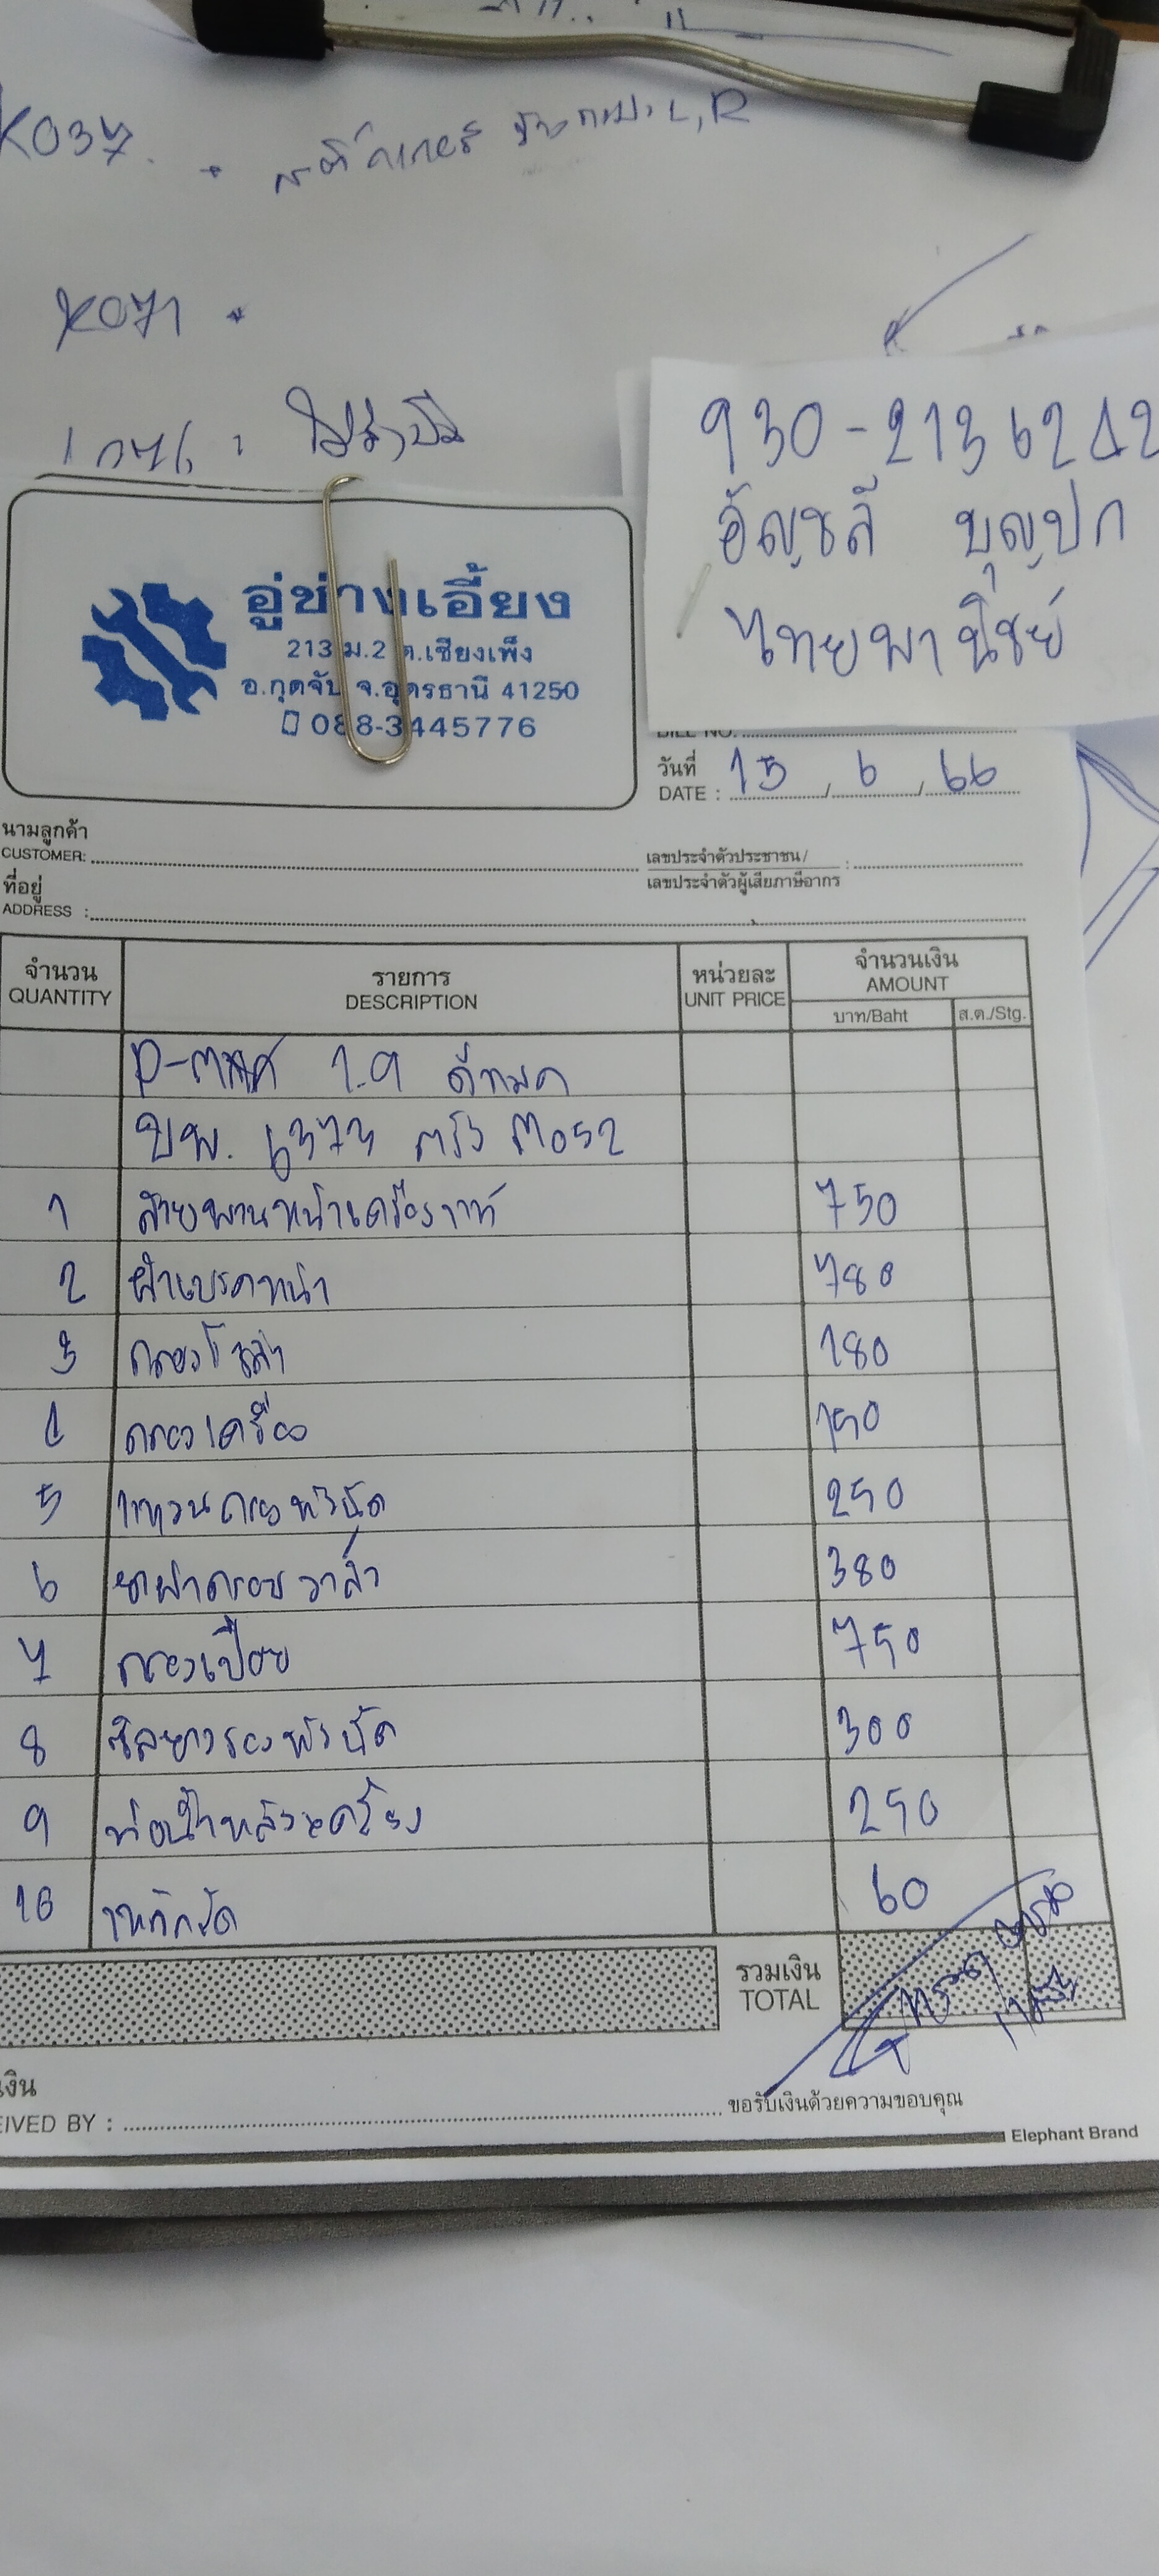 K037. สติ๊กเกอร์ ข้างกระบะ L, R
K071
930-2136242
อัญชลี บุญปก
ไทยพานิชย์
อู่ช่างเอี้ยง
213 ม.2 ต.เชียงเพ็ง
อ.กุดจับ จ.อุดรธานี 41250
088-3445776
BILL NO.
วันที่
DATE : 15 / 6 / 66
นามลูกค้า
CUSTOMER:
เลขประจำตัวประชาชน/ :
เลขประจำตัวผู้เสียภาษีอากร
ที่อยู่
ADDRESS :
จำนวน รายการ หน่วยละ จำนวนเงิน
QUANTITY DESCRIPTION UNIT PRICE AMOUNT
บาท/Baht ส.ต./Stg.
1.9 ดีแมค
บพ. 6373 ตรัง
1 สายพานหน้าเครื่อง 750
2 ผ้าเบรคหน้า 780
3 กรองโซล่า 180
4 กรองเครื่อง 190
5 แหวนรองหัวฉีด 250
6 ยางฝาครอบวาล์ว 380
7 กรองเปือย 750
8 ซีลยางรองหัวฉีด 300
9 ท่อน้ำหลังเครื่อง 250
10 เหล็กรัด 60
รวมเงิน
TOTAL
เงิน
EIVED BY :
ขอรับเงินด้วยความขอบคุณ
Elephant Brand